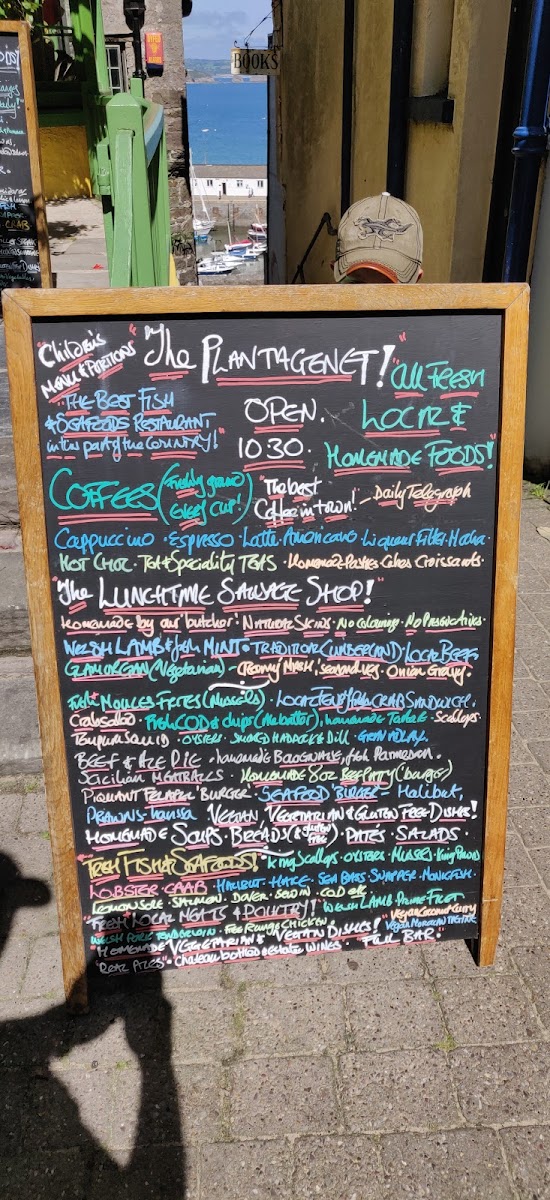 BOOKS
"Children's Menu & Portions"
"The PLANTAGENET!"
"All Fresh
Local &
Homemade Foods!"
"THE BEST FISH
& SEAFOODS RESTAURANT
in this part of the COUNTRY!"
OPEN.
10 30.
COFFEES (freshly ground every cup!)
"The best Coffee in town!" - Daily Telegraph
Cappuccino · Espresso · Latte Americano Liqueur Filter · Mocha ·
HOT CHOC · Tea & Speciality TEAS · Homemade Pastries Cakes Croissants ·
"The LUNCHTIME SAUSAGE SHOP!"
homemade by our butcher · Natural Skins · No colourings · No Preservatives ·
WELSH LAMB & fresh MINT · TRADITIONAL CUMBERLAND · LOCAL BEEF
GLAMORGAN (Vegetarian) - Creamy Mash, Onion Gravy ·
MOULES FRITES (Mussels) · CRAB SANDWICH ·
Crab salad · Fresh COD & chips (Ale batter), homemade Tartare · Scallops ·
Tempura Squid · OYSTERS · SMOKED HADDOCK & Dill · GRAVADLAX ·
BEEF & ALE PIE · homemade Bolognaise, fresh Parmesan ·
Sicilian MEATBALLS · Homemade 8oz BEEF PATTY ('burger)
PIQUANT 'BURGER · SEAFOOD 'BURGER - Halibut,
PRAWNS · VEGAN, VEGETARIAN & GLUTEN FREE DISHES!
HOMEMADE SOUPS, BREADS (& gluten free) · PATÉS · SALADS ·
"FRESH FISH & SEAFOODS!" · King Scallops · OYSTERS · MUSSELS · King Prawns
LOBSTER · CRAB · HALIBUT · HAKE · SEA BASS · SNAPPER · MONKFISH ·
LEMON SOLE · SALMON · DOVER · SEWIN · COD etc
"FRESH LOCAL MEATS & POULTRY!" WELSH LAMB · PRIME FILLET
WELSH PORK TENDERLOIN · FREE RANGE CHICKEN · Vegan Coconut Curry
"HOMEMADE VEGETARIAN & VEGAN DISHES! Vegan Moroccan TAGINE
"REAL ALES" · Chateau bottled & estate WINES · "FULL BAR"